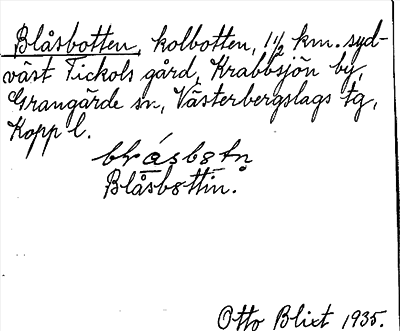 Blåsbotten, kolbotten, 1½ km. syd-
väst Tickols gård, Krabbsjön by,
Grangärde sn, Västerbergslags tg,
Kopp l.
Blåsbottin.
Otto Blixt 1935.